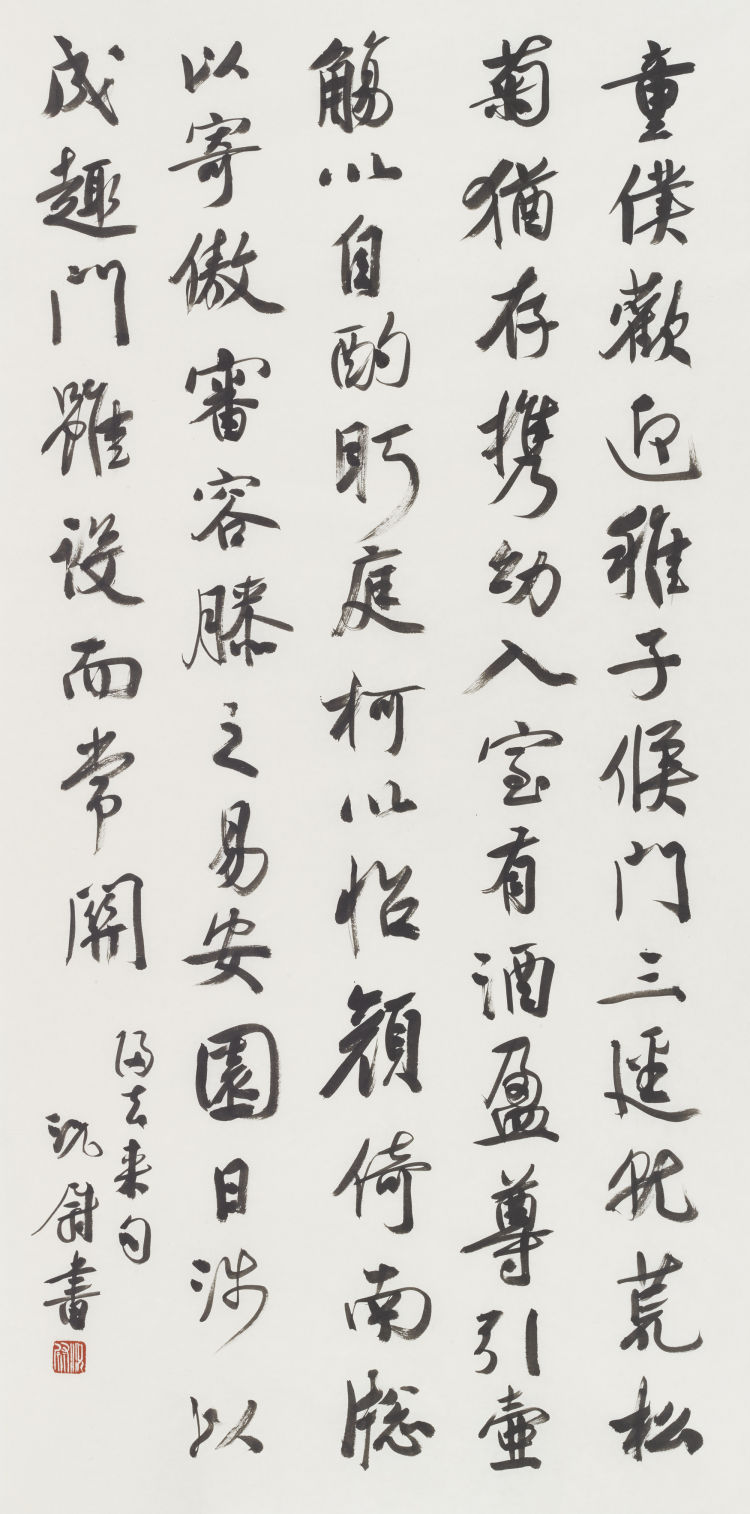 童僕歡迎稚子候門三逕就荒松
菊猶存携幼入室有酒盈尊引壺
觴以自酌眄庭柯以怡顏倚南牕
以寄傲審容膝之易安園日涉以
成趣門雖設而常關
歸去来句
沈尉書